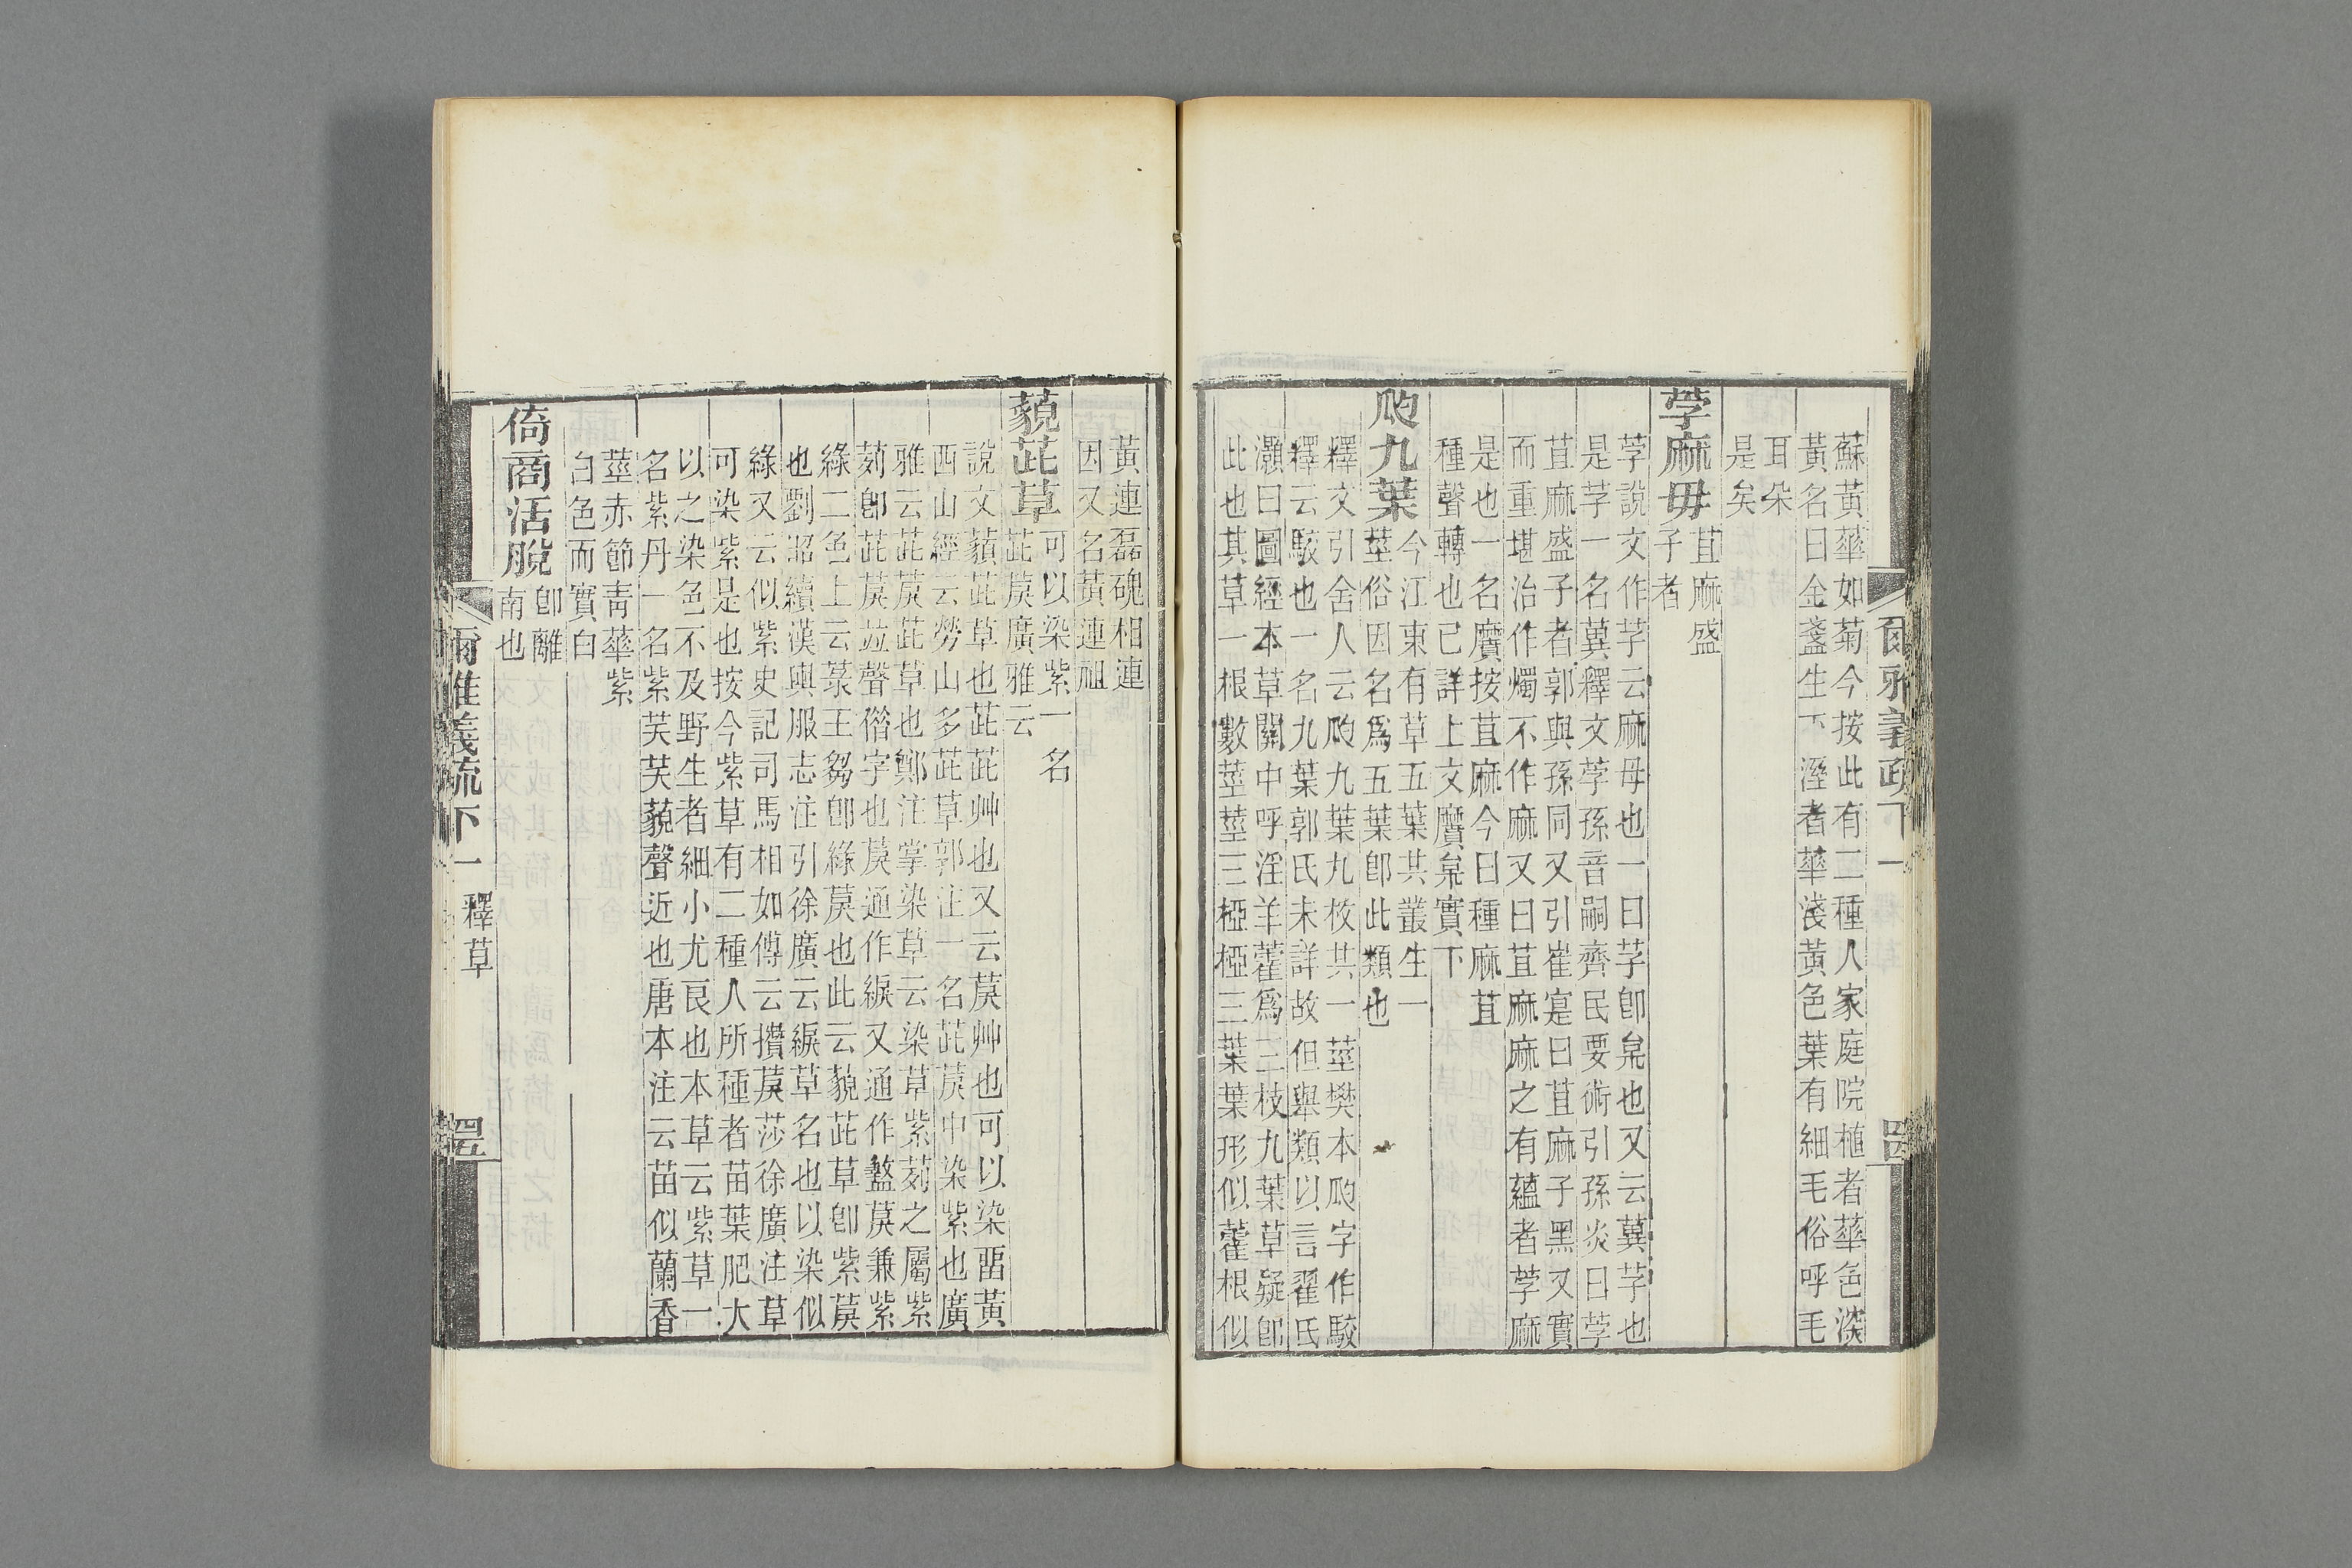 蘇黃華如菊今按此有二種人家庭院植者華色深
黃名曰金盞生下溼者華淺黃色葉有細毛俗呼毛
耳朵
是矣
荸麻母
苴麻盛
子者
芓說文作芓云麻母也一曰芓卽枲也又云䔬芓也
是芓一名䔬釋文荸孫音嗣齊民要術引孫炎曰荸
苴麻盛子者郭與孫同又引崔寔曰苴麻子黑又實
而重堪治作燭不作麻又曰苴麻麻之有蘊者荸麻
是也一名黂按苴麻今曰種麻麻苴
種聲轉也已詳上文黂枲實下
瓝九葉
今江東有草五葉共叢生一
莖俗因名爲五葉卽此類也
釋文引舍人云瓝九葉九枚共一莖樊本瓝字作駮
釋云駮也一名九葉郭氏未詳故但舉類以言翟氏
灝曰圖經本草關中呼淫羊藿爲三枝九葉草疑卽
此也其草一根數莖莖三椏椏三葉葉形似藿根似
爾雅義疏下一
黃連磊磈相連
因又名黃連祖
藐茈草
可以染紫一名
茈䓞廣雅云
說文藐茈草也茈茈艸也又云䓞艸也可以染畱黃
西山經云勞山多茈草郭注一名茈䓞中染紫也廣
雅云茈䓞茈草也鄭注掌染草云染草紫茢之屬紫
茢卽茈䓞竝聲僭字也䓞通作綟又通作盭䓞兼紫
綠二色上云菉王芻卽綠䓞也此云藐茈草卽紫䓞
也劉昭續漢輿服志注引徐廣云綟草名也以染似
綠又云似紫史記司馬相如傳云攢䓞莎徐廣注草
可染紫是也按今紫草有二種人所種者苗葉肥大
以之染色不及野生者細小尤良也本草云紫草一
名紫丹一名紫芺芺藐聲近也唐本注云苗似蘭香
莖赤節靑華紫
白色而實白
倚商活脫
卽離
南也
爾雅義疏下一
釋草